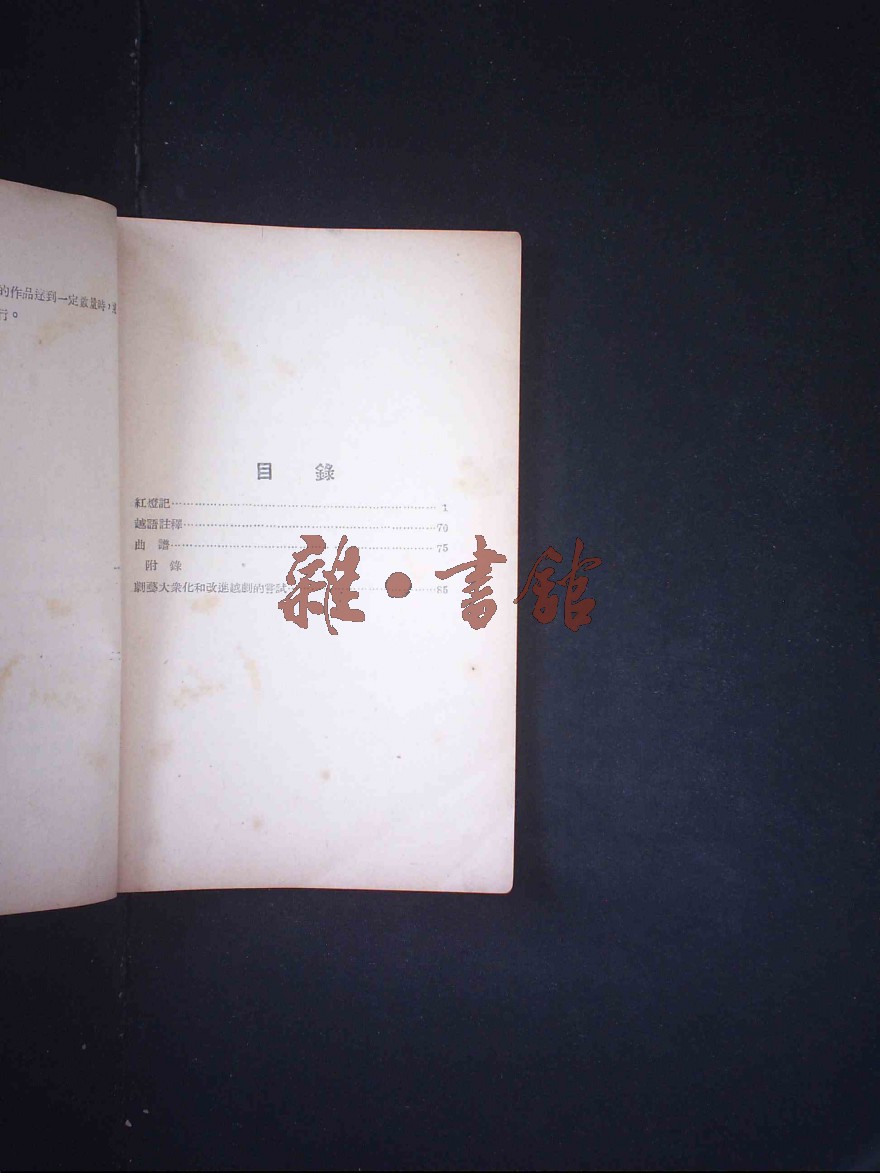 的作品達到一定數量時，
行。
目 錄
紅燈記 1
越語註釋 70
曲 譜 75
附 錄
劇藝大衆化和改進越劇的嘗試 85
雜·書館